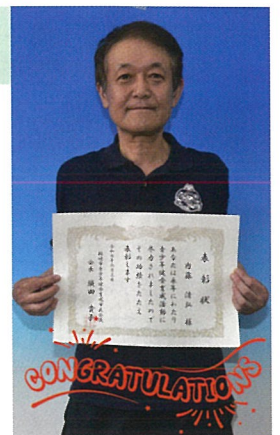 表彰状
内藤 清弘 様
あなたは永年にわたり
青少年健全育成活動に
尽力されましたので
その功績をたたえ
表彰します
会長 須田
CONGRATULATIONS